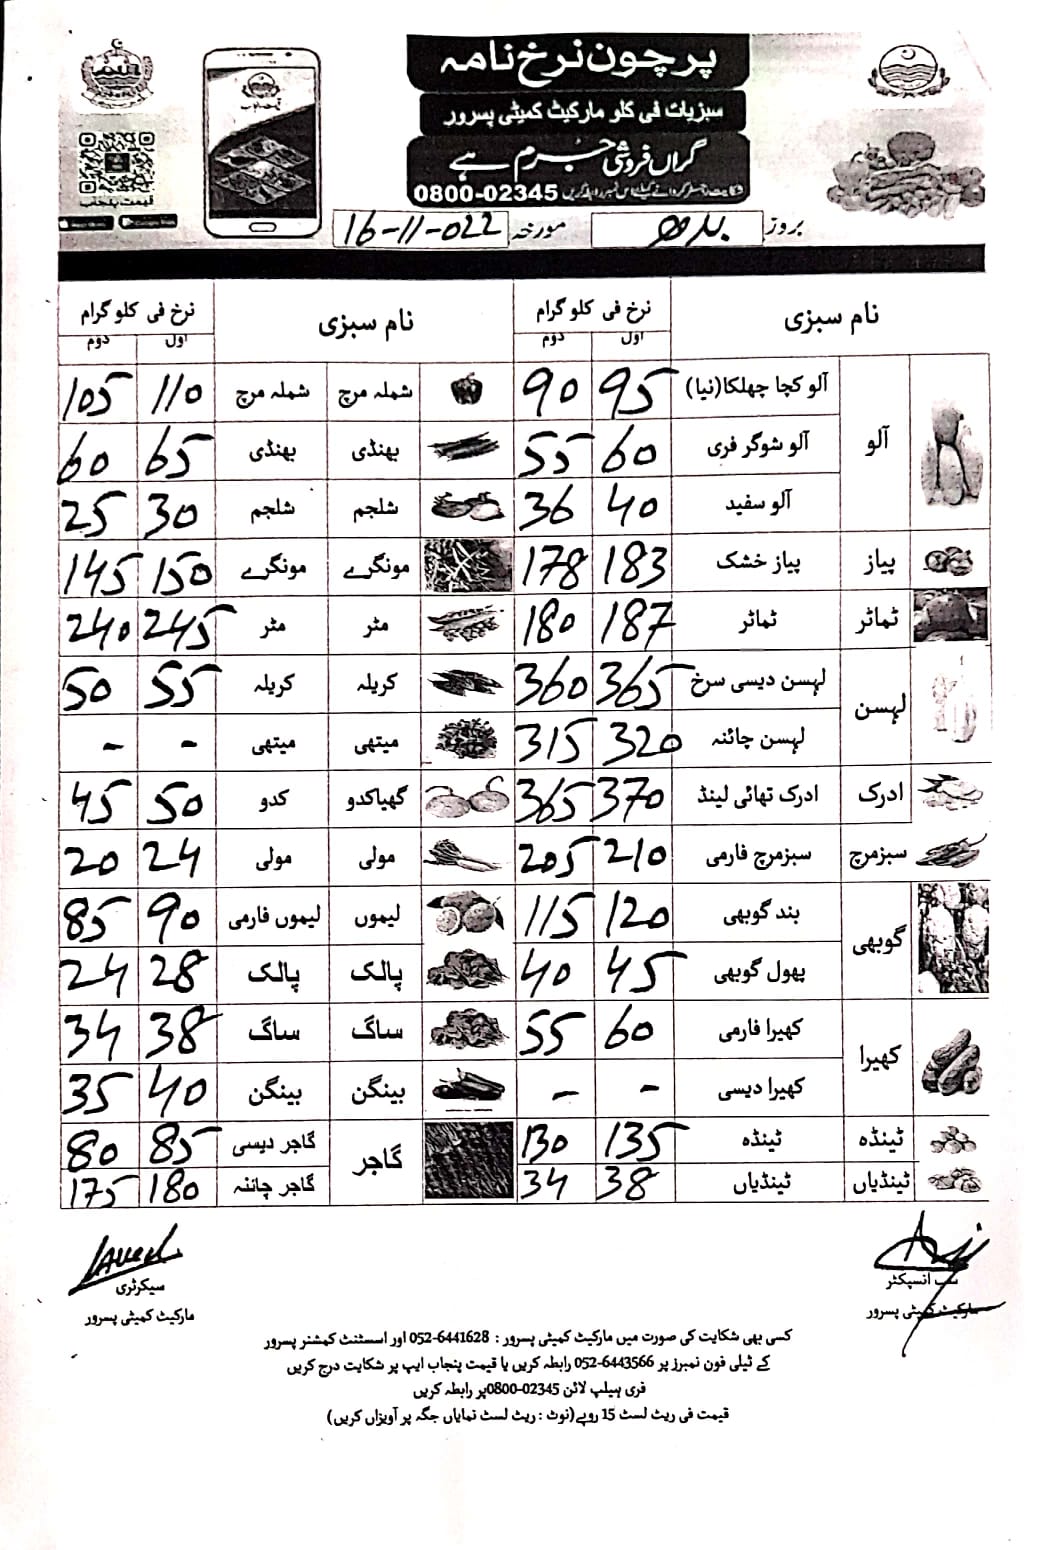 پرچون نرخ نامہ
سبزیات فی کلو مارکیٹ کمیٹی پسرور
گراں فروشی جرم ہے
0800-02345
قیمت پنجاب
بروز بدھ مورخہ 16-11-022
نام سبزی نرخ فی کلو گرام نام سبزی نرخ فی کلو گرام
اول دوم اول دوم
آلو آلو کچا چھلکا(نیا) 95 90 شملہ مرچ شملہ مرچ 110 105
آلو شوگر فری 60 55 بھنڈی بھنڈی 65 60
آلو سفید 40 36 شلجم شلجم 30 25
پیاز پیاز خشک 183 178 مونگرے مونگرے 150 145
ٹماٹر ٹماٹر 187 180 مٹر مٹر 245 240
لہسن لہسن دیسی سرخ 365 360 کریلہ کریلہ 55 50
لہسن چائنہ 320 315 میتھی میتھی - -
ادرک ادرک تھائی لینڈ 370 365 گھیاکدو کدو 50 45
سبزمرچ سبزمرچ فارمی 210 205 مولی مولی 24 20
گوبھی بند گوبھی 120 115 لیموں لیموں فارمی 90 85
پھول گوبھی 45 40 پالک پالک 28 24
کھیرا کھیرا فارمی 60 55 ساگ ساگ 38 34
کھیرا دیسی - - بینگن بینگن 40 35
ٹینڈہ ٹینڈہ 135 130 گاجر گاجر دیسی 85 80
ٹینڈیاں ٹینڈیاں 38 34 گاجر چائنہ 180 175
سب انسپکٹر سیکرٹری
مارکیٹ کمیٹی پسرور مارکیٹ کمیٹی پسرور
کسی بھی شکایت کی صورت میں مارکیٹ کمیٹی پسرور : 052-6441628 اور اسسٹنٹ کمشنر پسرور
کے ٹیلی فون نمبرز پر 052-6443566 رابطہ کریں یا قیمت پنجاب ایپ پر شکایت درج کریں
فری ہیلپ لائن 0800-02345پر رابطہ کریں
قیمت فی ریٹ لسٹ 15 روپے(نوٹ : ریٹ لسٹ نمایاں جگہ پر آویزاں کریں)